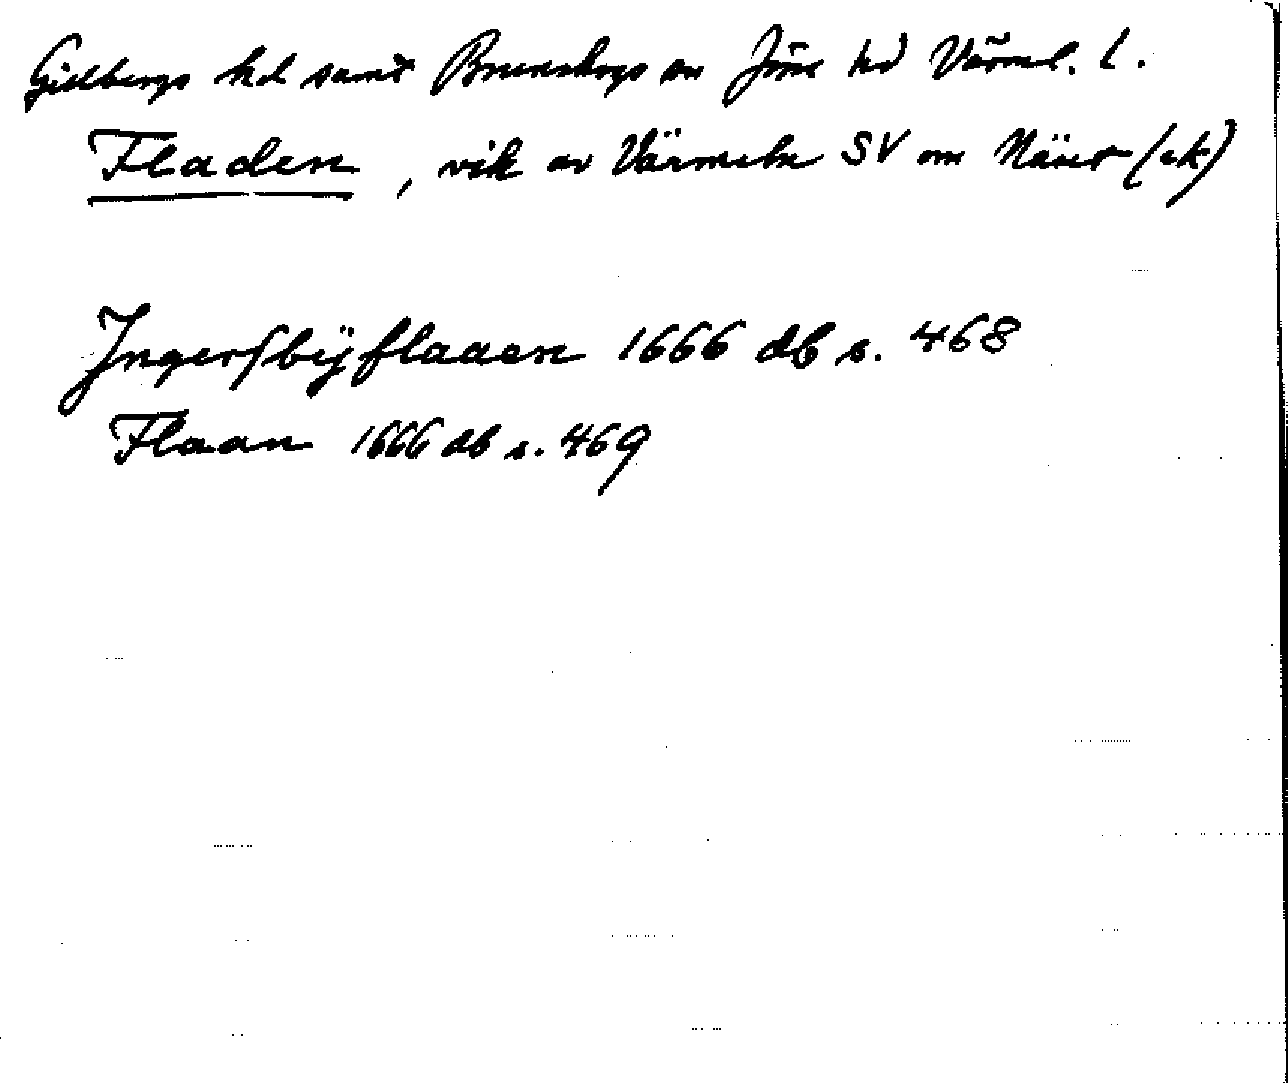 Gillbergs hd samt Brunskogs sn Jösse hd Värml. l.
Fladen, vik av Värmeln SV om Näset (ek)
Jngersbÿflaaen 1666 db s. 468
Flaan 1666 db s. 469